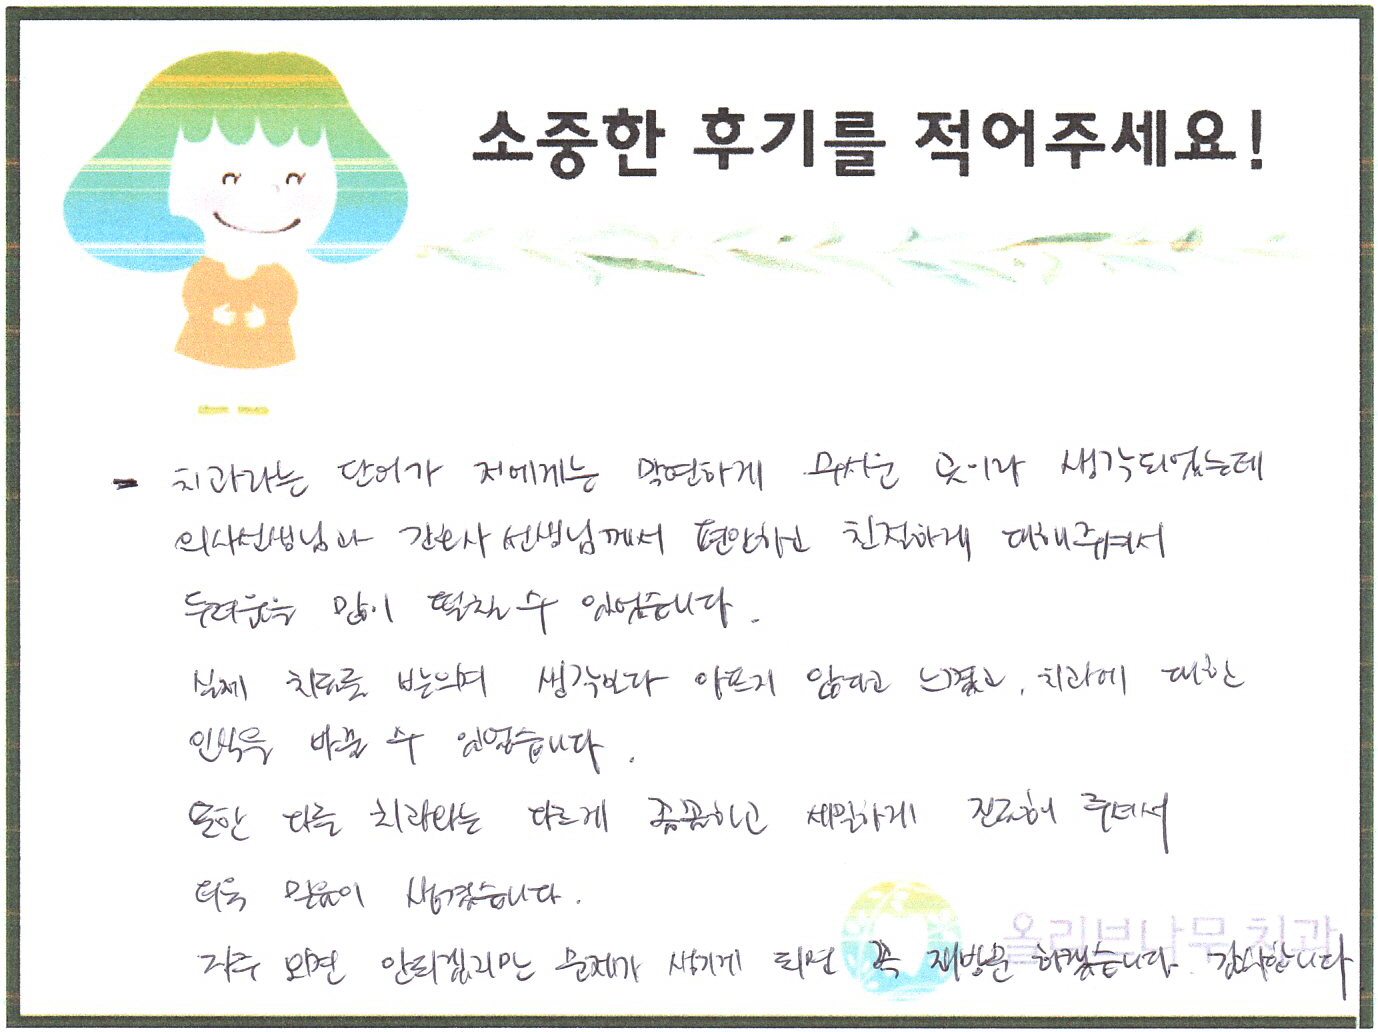 소중한 후기를 적어주세요!
- 치과라는 단어가 저에게는 막연하게 무서운 곳이라 생각되었는데
의사선생님과 간호사 선생님께서 편안하고 친절하게 대해주셔서
두려움을 많이 떨칠 수 있었습니다.
실제 치료를 받으며 생각보다 아프지 않다고 느꼈고, 치과에 대한
인식을 바꿀 수 있었습니다.
또한 다른 치과와는 다르게 꼼꼼하고 세밀하게 진료해 주셔서
더욱 믿음이 생겼습니다.
올리브나무 치과
자주 오면 안되겠지만 문제가 생기게 되면 꼭 재방문 하겠습니다. 감사합니다